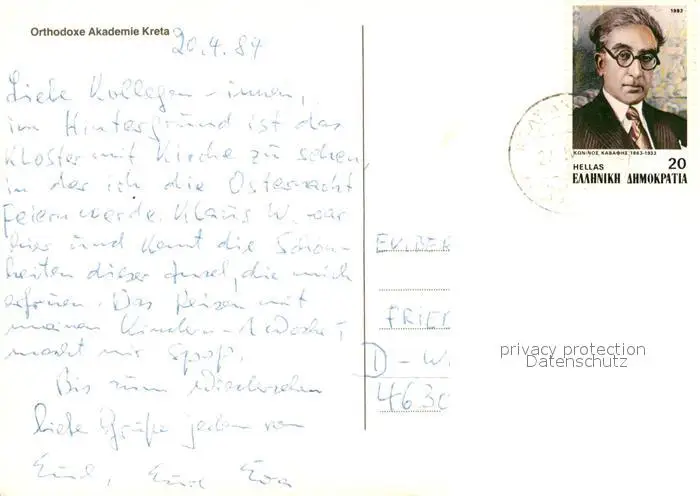 Orthodoxe Akademie Kreta
20.4.84
Liebe Kollegen -innen,
im Hintergrund ist das
Kloster mit Kirche zu sehen,
in der ich die Osternacht
feiern werde. Klaus W. war
hier und kennt die Schön-
heiten dieser Insel, die mich
erfreuen. Das Reisen mit
meinen Kindern - 1 Woche -
macht mir Spaß.
Bis zum Wiedersehen
liebe Grüße jedem von
Eva
1983
ΚΩΝ/ΝΟΣ ΚΑΒΑΦΗΣ 1863-1933
HELLAS 20
ΕΛΛΗΝΙΚΗ ΔΗΜΟΚΡΑΤΙΑ
EV. BER
FRIE
D - W
4630
privacy protection
Datenschutz